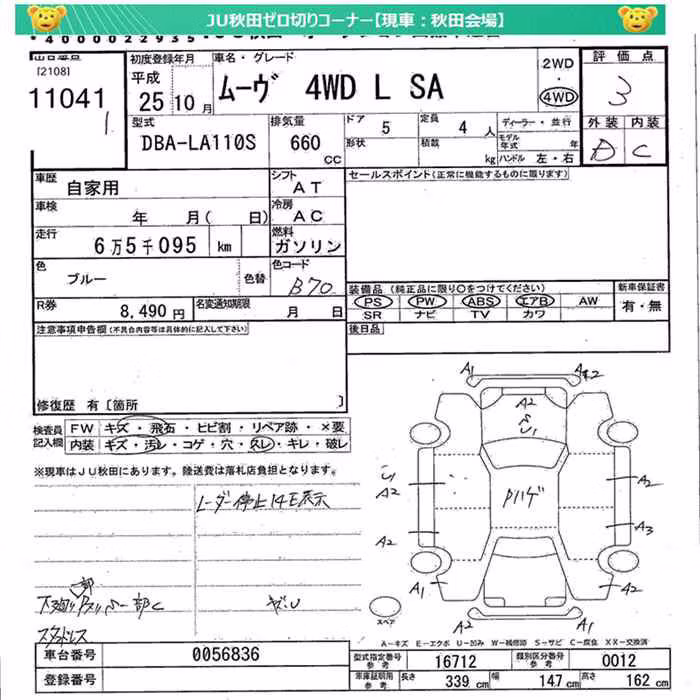 JU秋田ゼロ切りコーナー【現車：秋田会場】
[2108]
11041
1
初度登録年月
平成
25年10月
車名・グレード
ムーヴ 4WD L SA
2WD
・
4WD
評価点
3
外装 内装
D C
型式
DBA-LA110S
排気量
660 CC
ドア 5
形状
定員 4 人
積載 kg
ディーラー・並行
モデル年式 年
ハンドル 左・右
車歴 自家用
シフト AT
セールスポイント(正常に機能するものに限ります)
車検 年 月( 日)
冷房 AC
走行 6万5千095 km
燃料 ガソリン
色 ブルー 色替
色コード B70
装備品 (純正品に限り○をつけてください)
新車保証書
PS PW ABS エアB AW
有・無
SR ナビ TV カワ
R券 8,490円
名変通知期限 月 日
後日品
注意事項申告欄(不具合内容等は具体的に記入して下さい)
修復歴 有〔箇所 〕
検査員記入欄
FW キズ・飛石・ヒビ割・リペア跡・×要
内装 キズ・汚レ・コゲ・穴・スレ・キレ・破レ
※現車はJU秋田にあります。陸送費は落札店負担となります。
レーダー停止 14E表示
スタッドレス
A1 A2
A2
U1
U1
A2
A2
A2
A3
A1
A2
A1
A1
スペア
A-キズ E-エクボ U-凹み W-補修跡 S-サビ C-腐食 XX-交換済
車台番号 0056836
登録番号
型式指定番号 参考 16712
類別区分番号 参考 0012
車庫証明用 参考 長さ 339 cm 幅 147 cm 高さ 162 cm